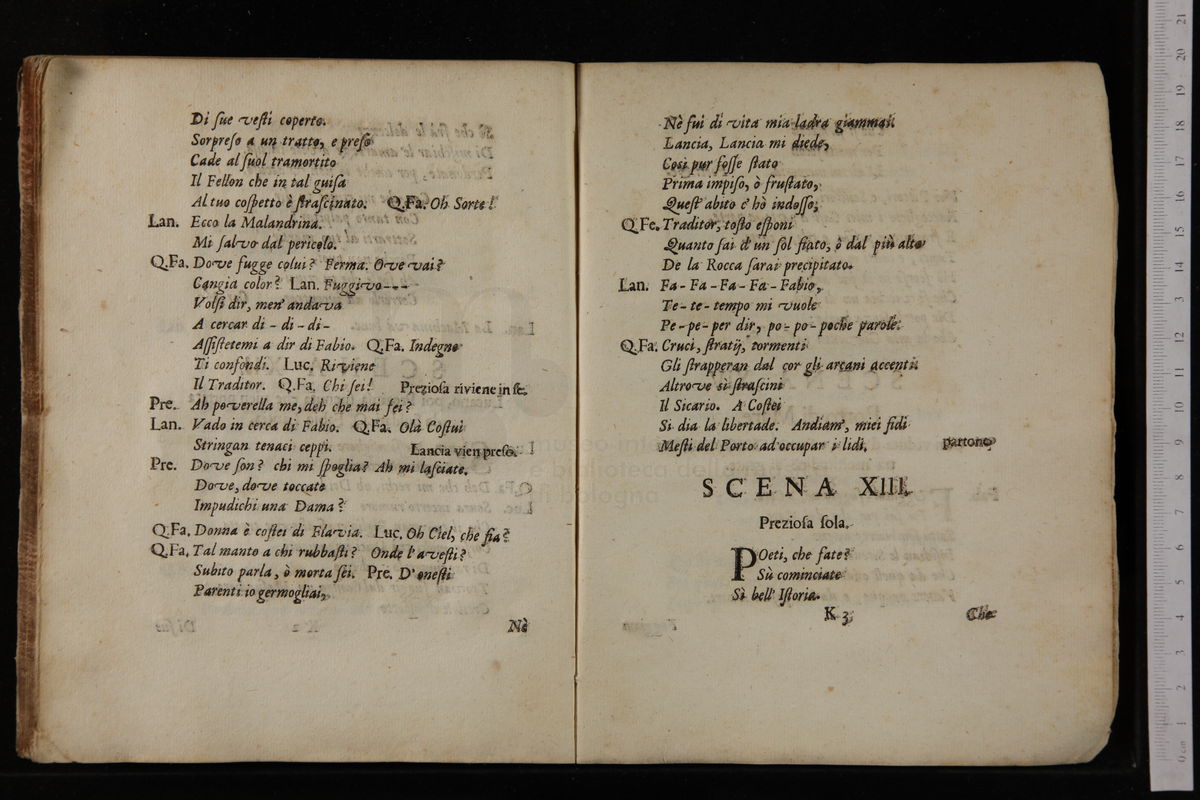 Di ſue veſti coperto.
Sorpreſo a un tratto, e preſo
Cade al ſuol tramortito
Il Fellon che in tal guiſa
Al tuo coſpetto è ſtraſcinato. Q.Fa. Oh Sorte!
Lan. Ecco la Malandrina.
Mi ſalvo dal pericolo.
Q.Fa. Dove fugge colui? Ferma. Ove vai?
Cangia color? Lan. Fuggivo---
Volſi dir, men' andava
A cercar di - di - di-
Aſſiſtetemi a dir di Fabio. Q.Fa. Indegno
Ti confondi. Luc. Riviene
Il Traditor. Q.Fa. Chi ſei! Prezioſa riviene in ſe.
Pre. Ah poverella me, deh che mai fei?
Lan. Vado in cerca di Fabio. Q.Fa. Olà Coſtui
Stringan tenaci ceppi. Lancia vien preſo.
Pre. Dove ſon? chi mi ſpoglia? Ah mi laſciate.
Dove, dove toccate
Impudichi una Dama?
Q.Fa. Donna è coſtei di Flavia. Luc. Oh Ciel, che ſia?
Q.Fa. Tal manto a chi rubbaſti? Onde l'aveſti?
Subito parla, ò morta ſei. Pre. D'oneſti
Parenti io germogliai,
Nè
Nè fui di vita mia ladra giammai.
Lancia, Lancia mi diede,
Così pur foſſe ſtato
Prima impiſo, ò fruſtato,
Queſt' abito c' hò indoſſo;
Q.Fe. Traditor, toſto eſponi
Quanto ſai d' un ſol fiato, ò dal più alto
De la Rocca ſarai precipitato.
Lan. Fa - Fa - Fa - Fa - Fabio,
Te - te - tempo mi vuole
Pe - pe - per dir, po - po - poche parole.
Q.Fa. Cruci, ſtratij, tormenti
Gli ſtrapperan dal cor gli arcani accenti.
Altrove si ſtraſcini
Il Sicario. A Coſtei
Si dia la libertade. Andiam', miei fidi
Meſti del Porto ad occupar i lidi. partono
SCENA XIII.
Prezioſa ſola.
POeti, che fate?
Sù cominciate
Sì bell' Iſtoria.
K 3 Che